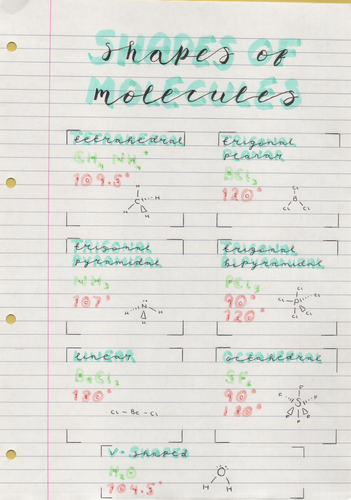 shapes of
molecules
tetrahedral
CH₄ NH₄⁺
109.5°
H
C
H
H
H
trigonal
planar
BCl₃
120°
Cl
B
Cl
Cl
trigonal
pyramidal
NH₃
107°
H
N
H
H
trigonal
bipyramidal
PCl₅
90°
120°
Cl
Cl
P
Cl
Cl
Cl
linear
BeCl₂
180°
Cl-Be-Cl
octahedral
SF₆
90°
180°
F
F
F
S
F
F
F
v-shaped
H₂O
104.5°
O
H H